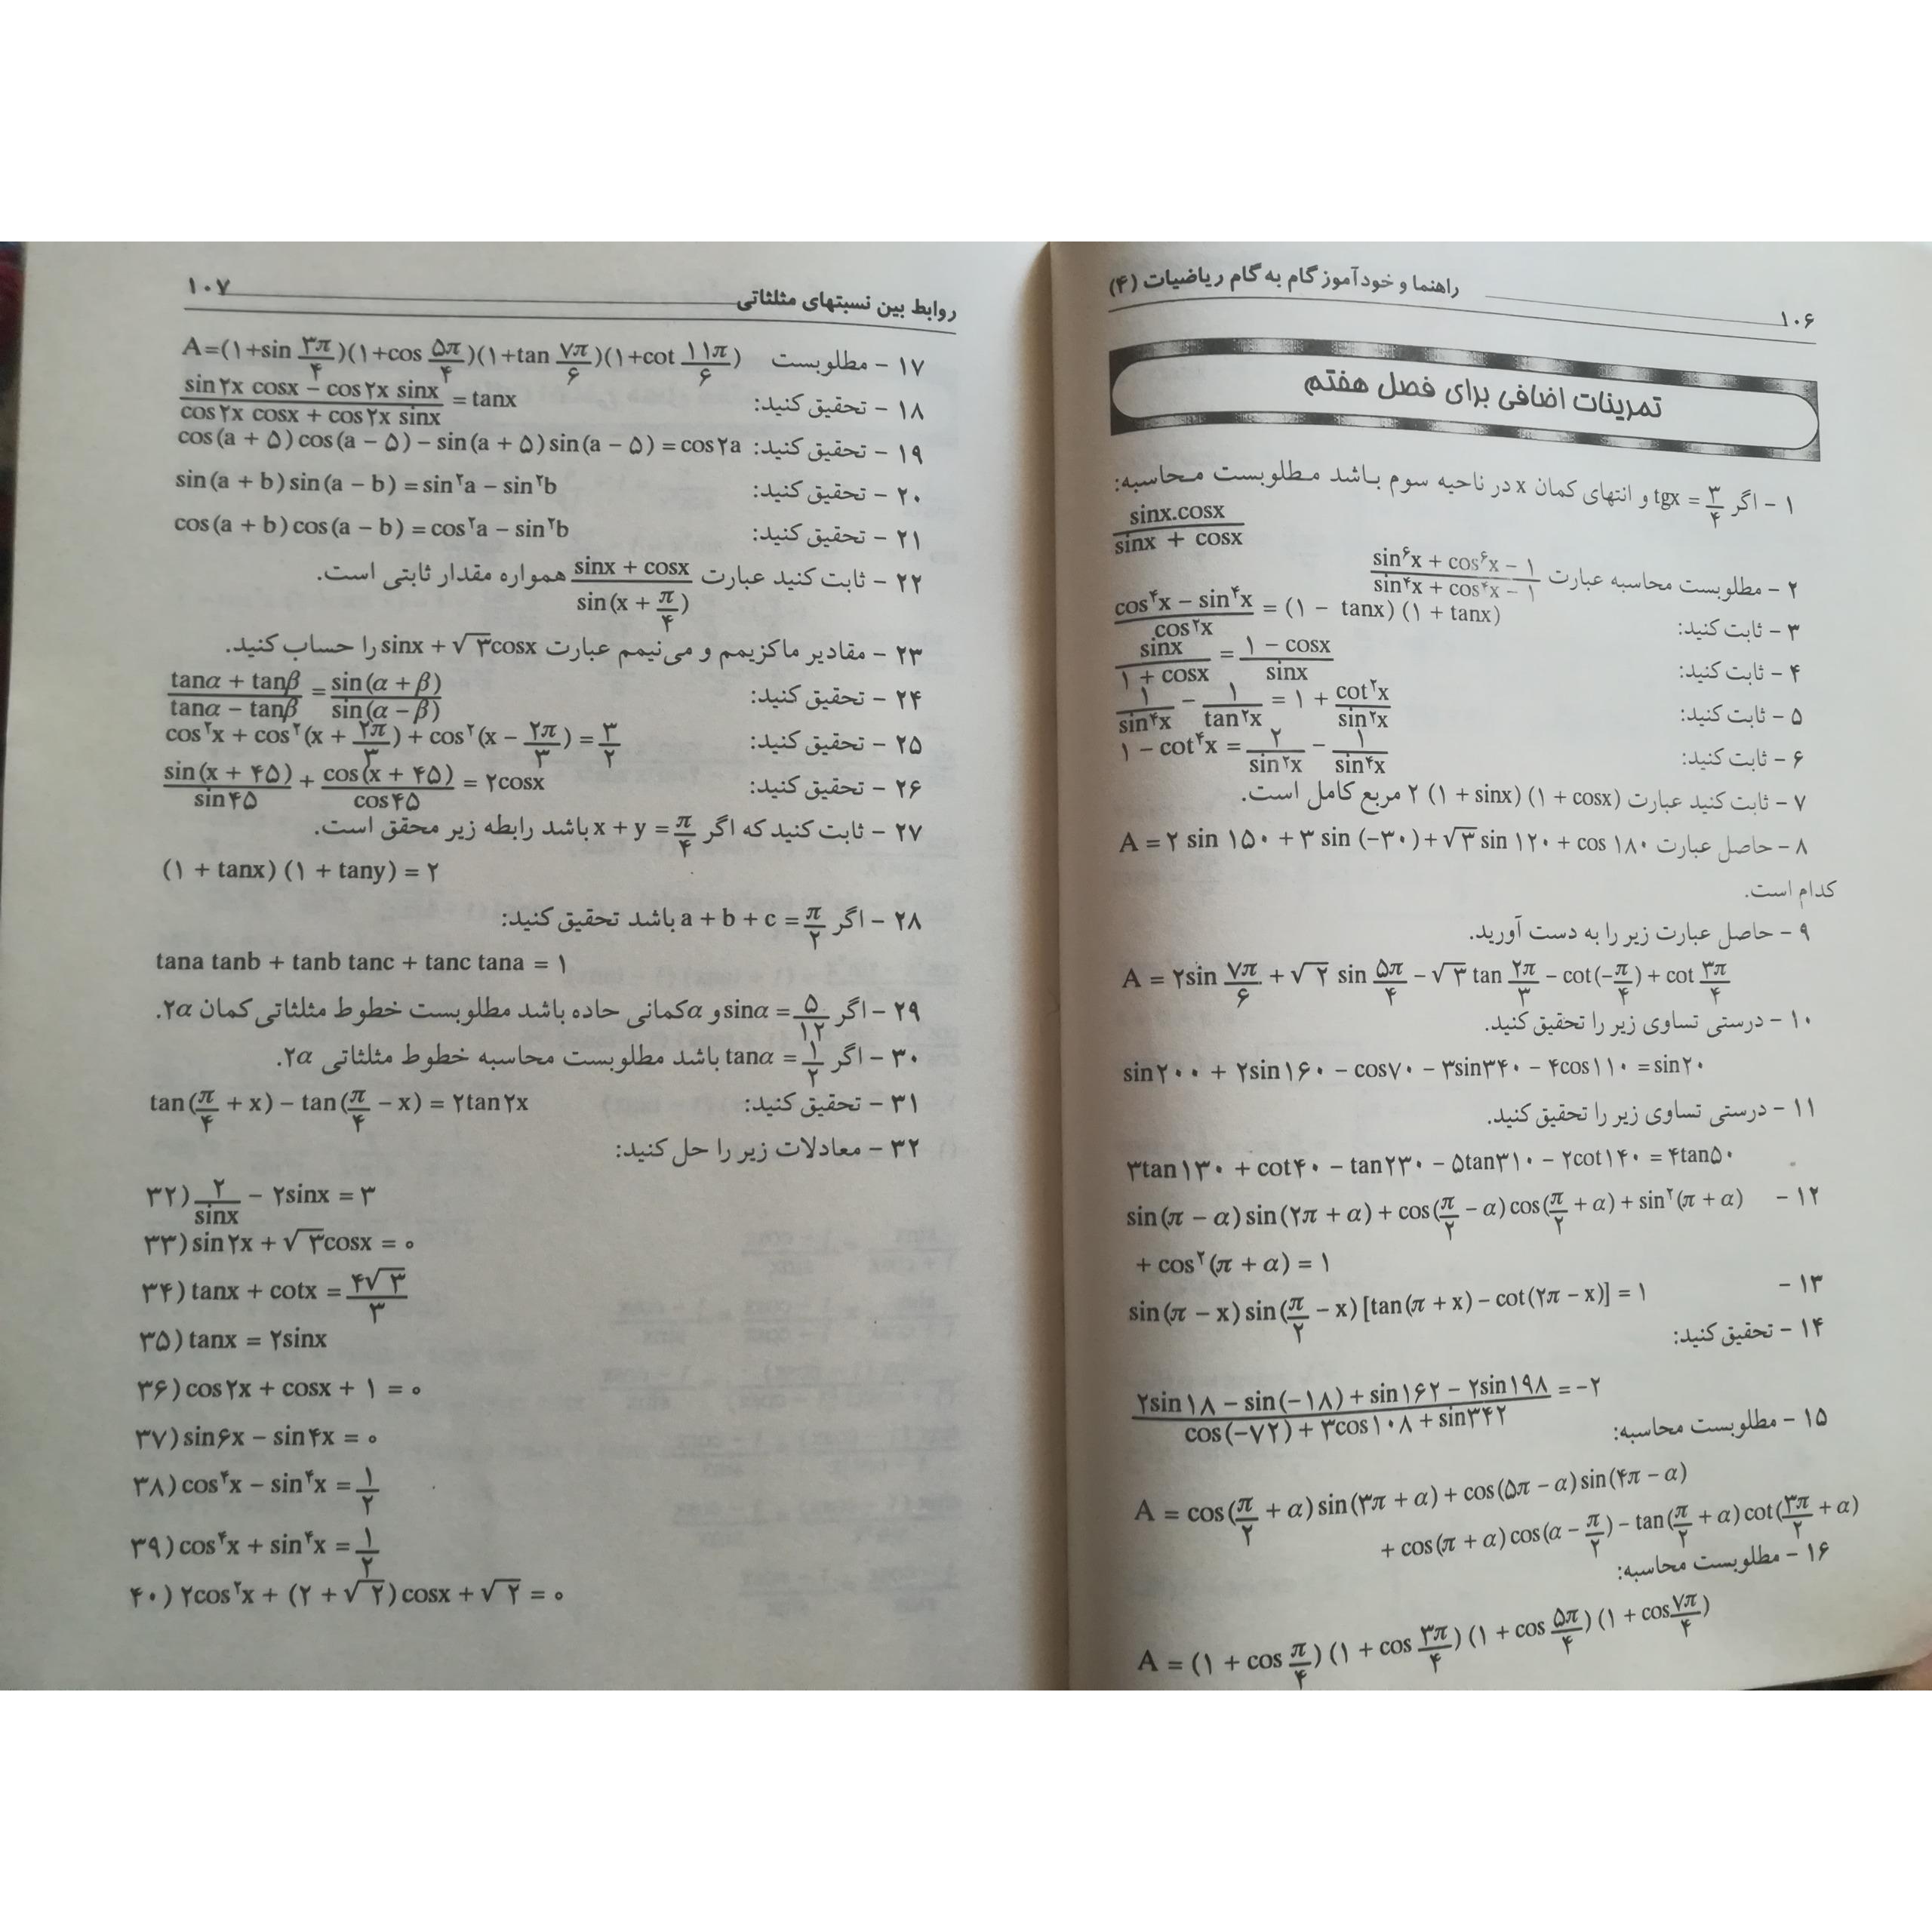 راهنما و خودآموز گام به گام ریاضیات (۴)
۱۰۶
تمرینات اضافی برای فصل هفتم
۱ - اگر tgx = ۳/۴ و انتهای کمان x در ناحیه سوم باشد مطلوبست محاسبه:
sinx.cosx / sinx + cosx
۲ - مطلوبست محاسبه عبارت sin⁶x + cos⁶x − ۱ / sin⁴x + cos⁴x − ۱
۳ - ثابت کنید: cos⁴x − sin⁴x / cos²x = (۱ − tanx) (۱ + tanx)
۴ - ثابت کنید: sinx / ۱ + cosx = ۱ − cosx / sinx
۵ - ثابت کنید: ۱/sin⁴x − ۱/tan²x = ۱ + cot²x/sin²x
۶ - ثابت کنید: ۱ − cot⁴x = ۲/sin²x − ۱/sin⁴x
۷ - ثابت کنید عبارت ۲ (۱ + sinx) (۱ + cosx) مربع کامل است.
۸ - حاصل عبارت A = ۲ sin ۱۵۰ + ۳ sin (−۳۰) + √۳ sin ۱۲۰ + cos ۱۸۰
کدام است.
۹ - حاصل عبارت زیر را به دست آورید.
A = ۲sin ۷π/۶ + √۲ sin ۵π/۴ − √۳ tan ۲π/۳ − cot(−π/۴) + cot ۳π/۴
۱۰ - درستی تساوی زیر را تحقیق کنید.
sin۲۰۰ + ۲sin۱۶۰ − cos۷۰ − ۳sin۳۴۰ − ۴cos۱۱۰ = sin۲۰
۱۱ - درستی تساوی زیر را تحقیق کنید.
۳tan۱۳۰ + cot۴۰ − tan۲۳۰ − ۵tan۳۱۰ − ۲cot۱۴۰ = ۴tan۵۰
۱۲ - sin(π − α) sin(۲π + α) + cos(π/۲ − α) cos(π/۲ + α) + sin²(π + α)
+ cos²(π + α) = ۱
۱۳ - sin(π − x) sin(π/۲ − x) [tan(π + x) − cot(۲π − x)] = ۱
۱۴ - تحقیق کنید:
۲sin۱۸ − sin(−۱۸) + sin۱۶۲ − ۲sin۱۹۸ / cos(−۷۲) + ۳cos۱۰۸ + sin۳۴۲ = −۲
۱۵ - مطلوبست محاسبه:
A = cos(π/۲ + α) sin(۳π + α) + cos(۵π − α) sin(۴π − α)
+ cos(π + α) cos(α − π/۲) − tan(π/۲ + α) cot(۳π/۲ + α)
۱۶ - مطلوبست محاسبه:
A = (۱ + cos π/۴) (۱ + cos ۳π/۴) (۱ + cos ۵π/۴) (۱ + cos ۷π/۴)
روابط بین نسبتهای مثلثاتی
۱۰۷
۱۷ - مطلوبست A=(۱+sin ۳π/۴)(۱+cos ۵π/۴)(۱+tan ۷π/۶)(۱+cot ۱۱π/۶)
۱۸ - تحقیق کنید: sin۲x cosx − cos۲x sinx / cos۲x cosx + cos۲x sinx = tanx
۱۹ - تحقیق کنید: cos(a + ۵) cos(a − ۵) − sin(a + ۵) sin(a − ۵) = cos۲a
۲۰ - تحقیق کنید: sin(a + b) sin(a − b) = sin²a − sin²b
۲۱ - تحقیق کنید: cos(a + b) cos(a − b) = cos²a − sin²b
۲۲ - ثابت کنید عبارت sinx + cosx / sin(x + π/۴) همواره مقدار ثابتی است.
۲۳ - مقادیر ماکزیمم و می‌نیمم عبارت sinx + √۳cosx را حساب کنید.
۲۴ - تحقیق کنید: tanα + tanβ / tanα − tanβ = sin(α + β) / sin(α − β)
۲۵ - تحقیق کنید: cos²x + cos²(x + ۲π/۳) + cos²(x − ۲π/۳) = ۳/۲
۲۶ - تحقیق کنید: sin(x + ۴۵)/sin۴۵ + cos(x + ۴۵)/cos۴۵ = ۲cosx
۲۷ - ثابت کنید که اگر x + y = π/۴ باشد رابطه زیر محقق است.
(۱ + tanx) (۱ + tany) = ۲
۲۸ - اگر a + b + c = π/۲ باشد تحقیق کنید:
tana tanb + tanb tanc + tanc tana = ۱
۲۹ - اگر sinα = ۵/۱۲ و α کمانی حاده باشد مطلوبست خطوط مثلثاتی کمان ۲α.
۳۰ - اگر tanα = ۱/۲ باشد مطلوبست محاسبه خطوط مثلثاتی ۲α.
۳۱ - تحقیق کنید: tan(π/۴ + x) − tan(π/۴ − x) = ۲tan۲x
۳۲ - معادلات زیر را حل کنید:
۳۲) ۲/sinx − ۲sinx = ۳
۳۳) sin۲x + √۳cosx = ۰
۳۴) tanx + cotx = ۴√۳/۳
۳۵) tanx = ۲sinx
۳۶) cos۲x + cosx + ۱ = ۰
۳۷) sin۶x − sin۴x = ۰
۳۸) cos⁴x − sin⁴x = ۱/۲
۳۹) cos⁴x + sin⁴x = ۱/۲
۴۰) ۲cos²x + (۲ + √۲) cosx + √۲ = ۰